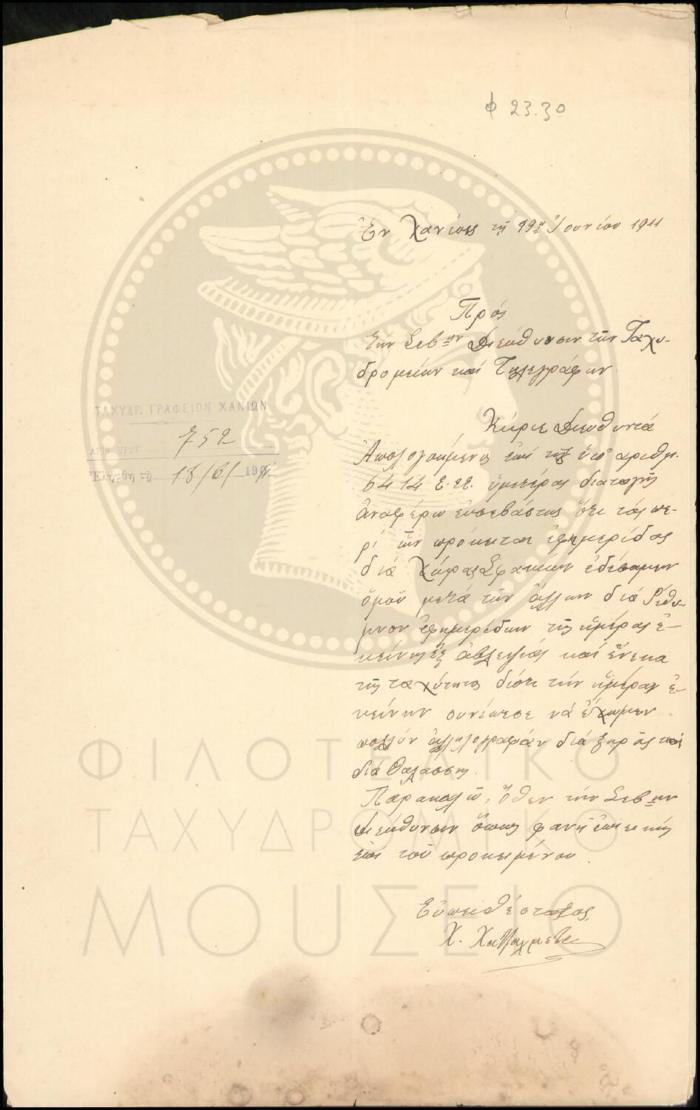 φ 23.30
Ἐν Χανίοις τῇ Ἰουνίου 1911
Πρός
τὴν Σεβ ην Διεύθυνσιν τῶν Ταχυ-
δρομείων καὶ Τηλεγράφων.
ΤΑΧΥΔΡ. ΓΡΑΦΕΙΟΝ ΧΑΝΙΩΝ
752
Κύριε Διευθυντά
Ἀπολογούμενος ἐπὶ τῆς ὑπ' ἀριθμ.
ὑμετέρας διαταγῆς
ἀναφέρω εὐσεβάστως ὅτι τὰς πε-
ρὶ ὧν πρόκειται ἐφημερίδας
διὰ Χώρας Σφακίων ἐδέσαμεν
ὁμοῦ μετὰ τῶν ἄλλων διὰ Ρέθυ-
μνον ἐφημερίδων τῆς ἡμέρας ἐ-
κείνης ἐξ ἀβλεψίας καὶ ἕνεκα
τῆς ταχύτητος διότι τὴν ἡμέραν ἐ-
κείνην συνέπεσε νὰ ἔχωμεν
πολλὴν ἀλληλογραφίαν διὰ ξηρᾶς καὶ
διὰ θαλάσσης.
Παρακαλῶ, ὅθεν τὴν Σεβ ην
Διεύθυνσιν ὅπως φανῇ ἐπιεικὴς
ἐπὶ τοῦ προκειμένου.
Εὐπειθέστατος
Χ.
ΦΙΛΟΤΕΛΙΚΟ
ΤΑΧΥΔΡΟΜΙΚΟ
ΜΟΥΣΕΙΟ